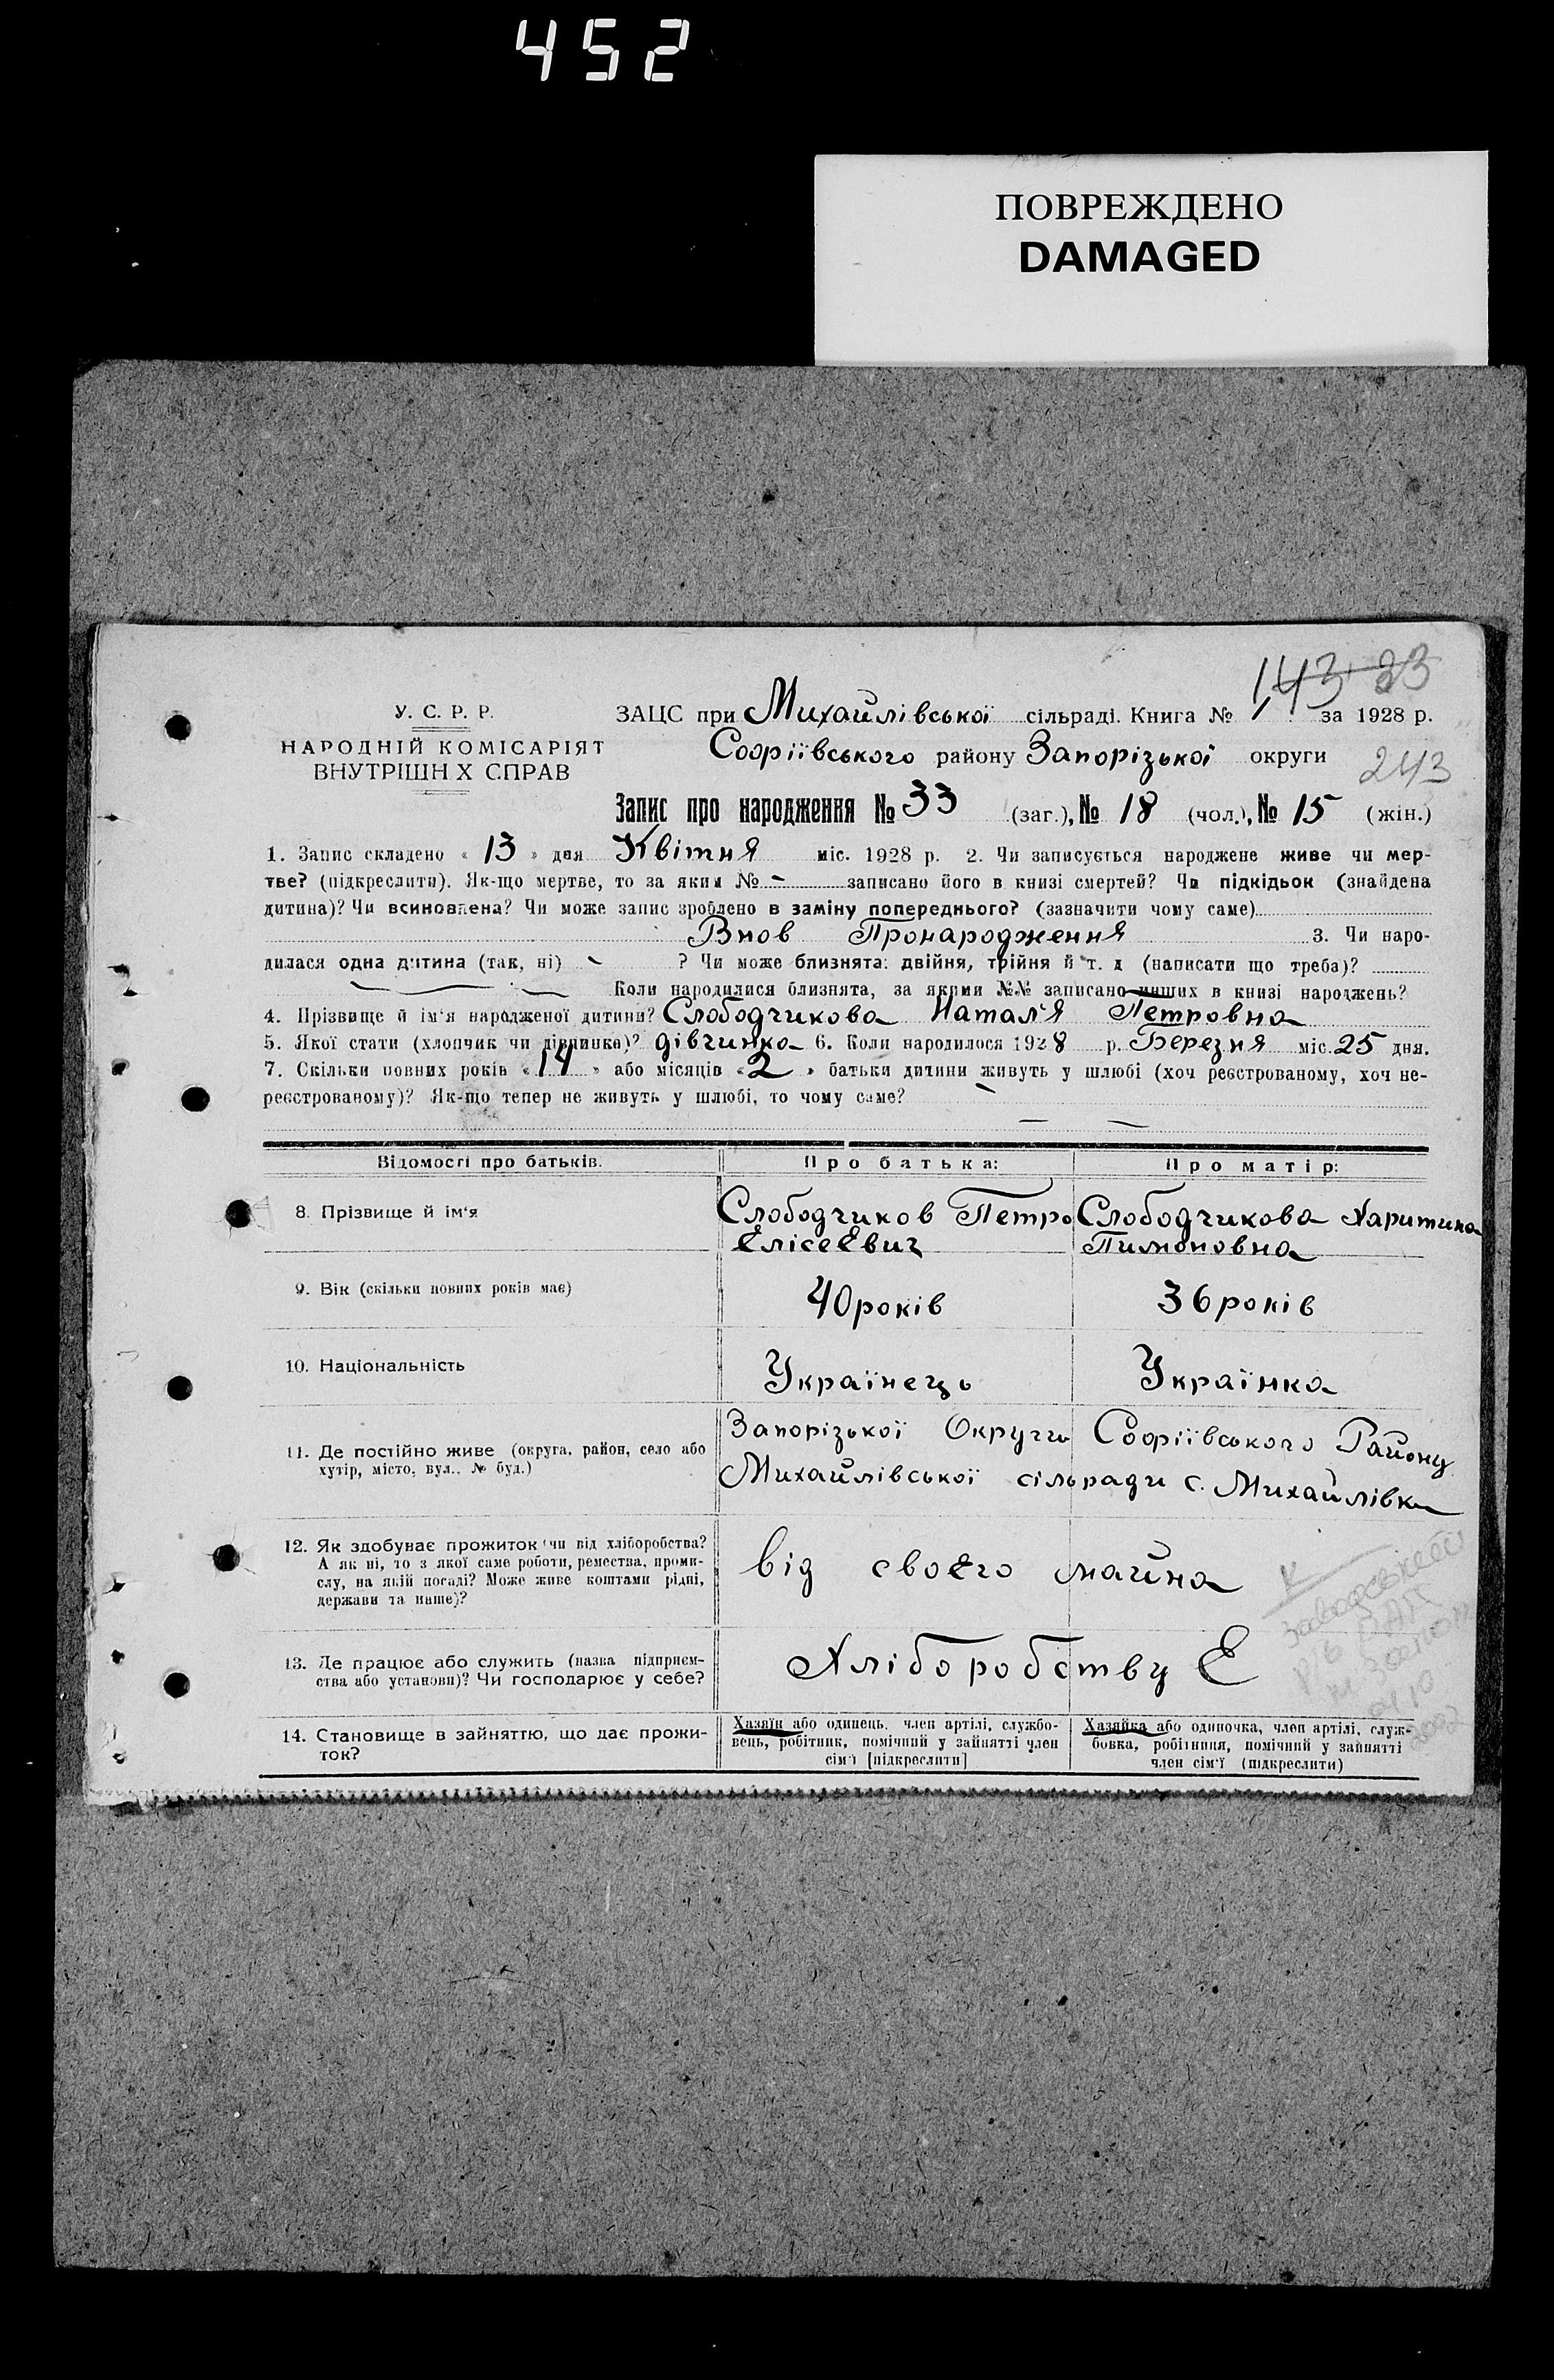 452
ПОВРЕЖДЕНО
DAMAGED
143 23
У. С. Р. Р.
НАРОДНІЙ КОМІСАРІЯТ
ВНУТРІШН Х СПРАВ
ЗАЦС при Михайлівської сільраді. Книга № 1 за 1928 р.
Софіївського району Запорізької округи
243
Запис про народження № 33 (заг.), № 18 (чол.), № 15 (жін.)
1. Запис складено « 13 » дня Квітня міс. 1928 р. 2. Чи записується народжене живе чи мер-
тве? (підкреслити). Як-що мертве, то за яким № - записано його в книзі смертей? Чи підкідьок (знайдена
дитина)? Чи всиновлена? Чи може запис зроблено в заміну попереднього? (зазначити чому саме)
Внов Пронародження 3. Чи наро-
дилася одна дитина (так, ні) - ? Чи може близнята: двійня, трійня й т. д (написати що треба)?
Коли народилися близнята, за якими №№ записано инших в книзі народжень?
4. Прізвище й ім'я народженої дитини? Слободчикова Натал'я Петровна
5. Якої статі (хлопчик чи дівчинка)? дівчинка 6. Коли народилося 1928 р. Березня міс. 25 дня.
7. Скільки повних років « 14 » або місяців « 2 » батьки дитини живуть у шлюбі (хоч реєстрованому, хоч не-
реєстрованому)? Як-що тепер не живуть у шлюбі, то чому саме? -
Відомості про батьків. Про батька: Про матір:
8. Прізвище й ім'я Слободчиков Петро Слободчикова Харитина
Елісеєвич Пимоновна
9. Вік (скільки повних років має) 40 років 36 років
10. Національність Українець Українка
11. Де постійно живе (округа, район, село або
хутір, місто, вул., № буд.)
Запорізької Округи Софіївського Району
Михайлівської сільради с. Михайлівки
12. Як здобуває прожиток (чи від хліборобства?
А як ні, то з якої саме роботи, ремества, проми-
слу, на якій посаді? Може живе коштами рідні,
держави та инше)?
від своєго майна
13. Де працює або служить (назва підприєм-
ства або установи)? Чи господарює у себе?
Хліборобству Є
14. Становище в зайняттю, що дає прожи-
ток?
Хазяїн або одинець, член артілі, службо-
вець, робітник, помічний у зайнятті член
сім'ї [підкреслити]
Хазяйка або одиночка, член артілі, служ-
бовка, робітниця, помічний у зайнятті
член сім'ї (підкреслити)